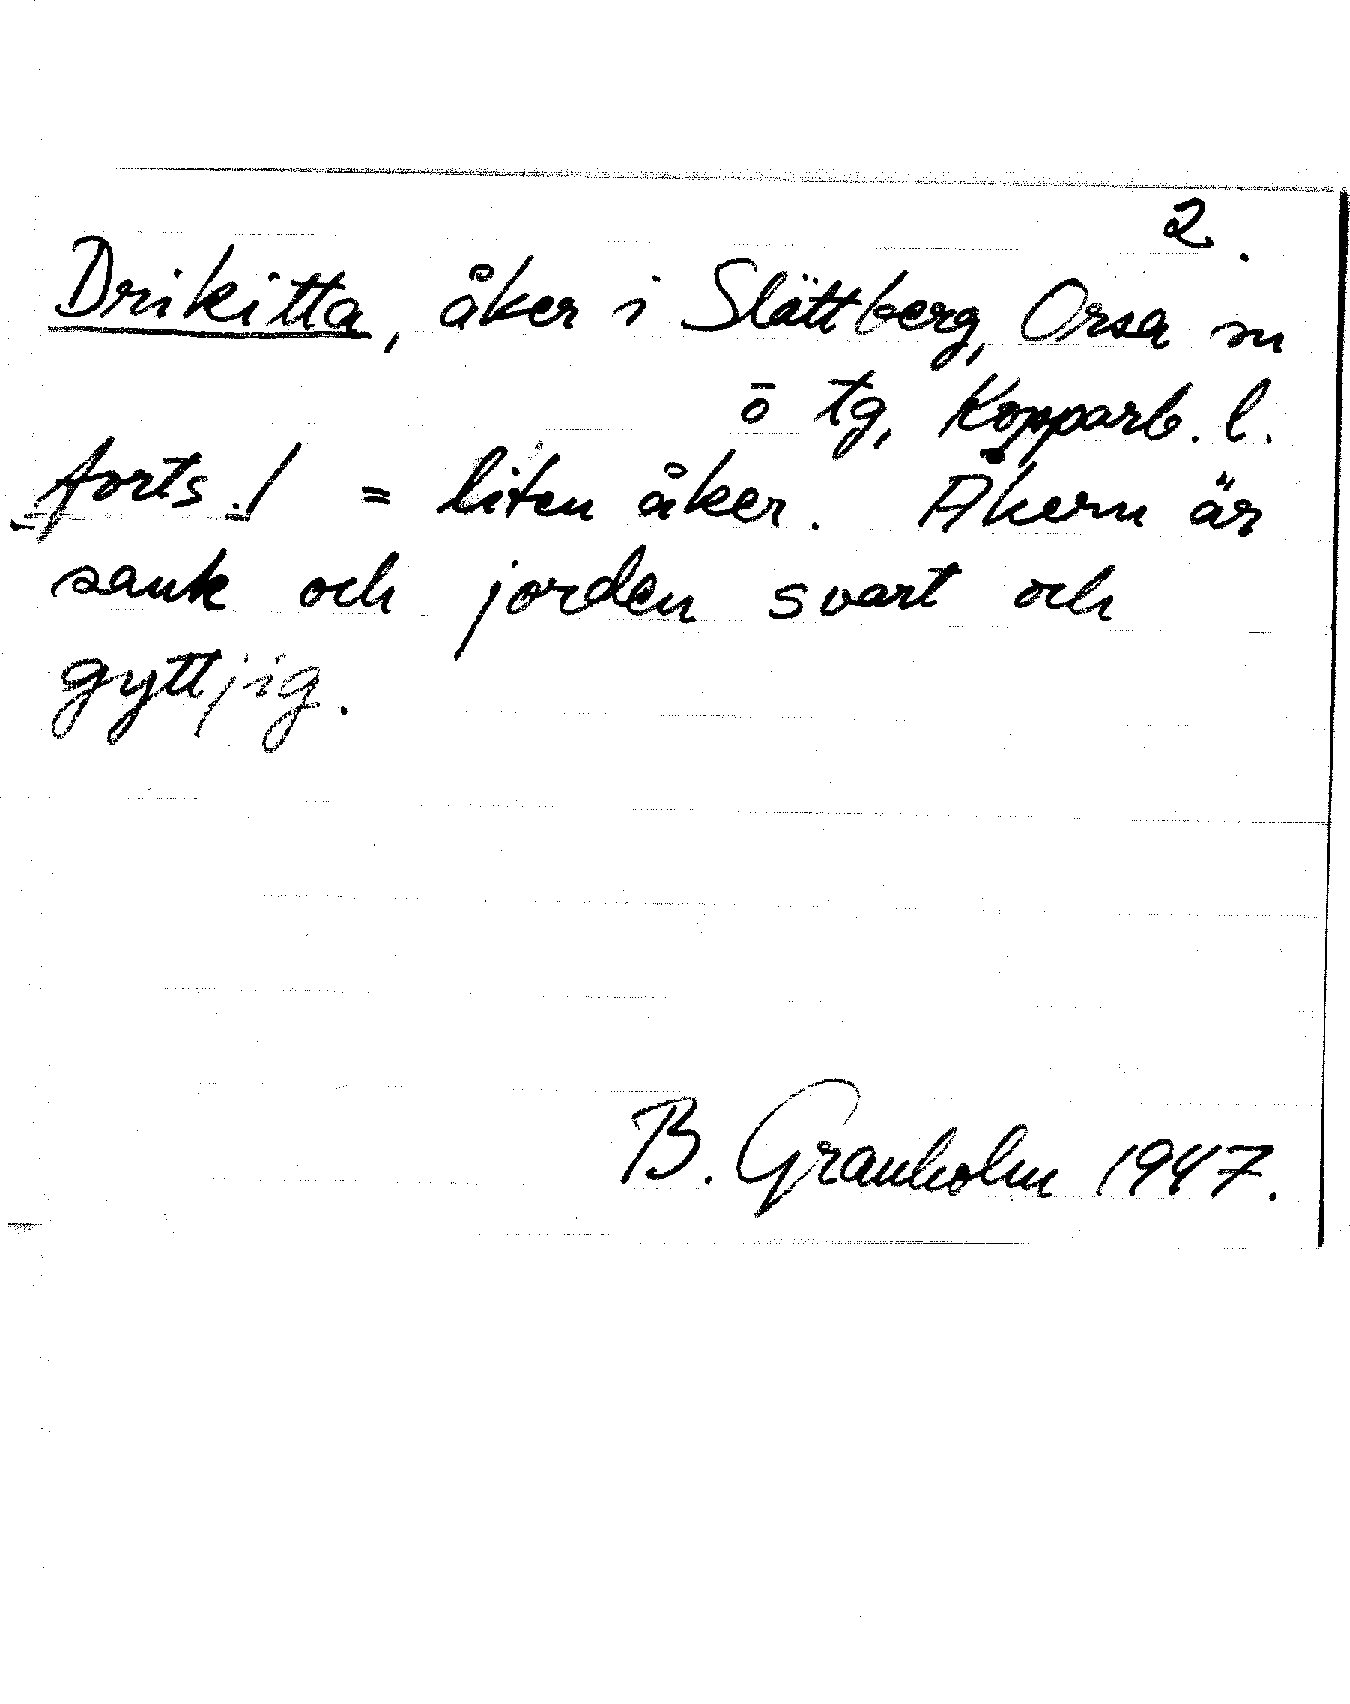 2.
Drikitta, åker i Slättberg, Orsa sn
ö tg, Kopparb. l.
forts./ = liten åker. Åkern är
sank och jorden svart och
gyttjig.
B. Granholm 1947.